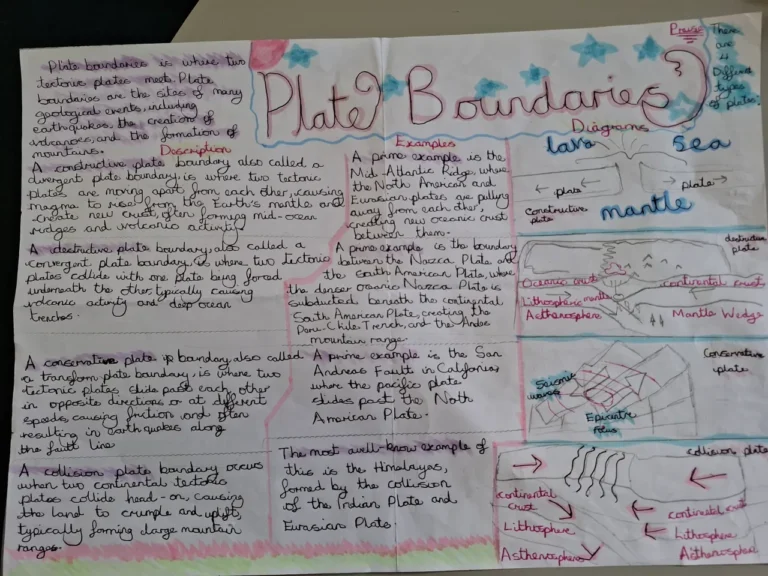 Plate boundaries is where two
tectonic plates meet. Plate
boundaries are the sites of many
geological events, including
earthquakes, the creation of
volcanoes, and the formation of
mountains.
Plate Boundaries
There
are
4
Different
types
of plates
Description
A constructive plate boundary also called a
divergent plate boundary, is where two tectonic
plates are moving apart from each other, causing
magma to rise from the Earth's mantle and
create new crust, often forming mid-ocean
ridges and volcanic activity
A destructive plate boundary, also called a
convergent plate boundary, is where two tectonic
plates collide with one plate being forced
underneath the other, typically causing
volcanic activity and deep ocean
trenches.
A conservative plate boundary, also called
a transform plate boundary, is where two
tectonic plates slide past each other
in opposite directions or at different
speeds causing friction and often
resulting in earthquakes along
the fault line
A collision plate boundary occurs
when two continental tectonic
plates collide head-on, causing
the land to crumple and uplift,
typically forming large mountain
ranges.
Examples
A prime example is the
Mid-Atlantic Ridge, where
the North American and
Eurasian plates are pulling
away from each other,
creating new oceanic crust
between them.
A prime example is the boundary
between the Nazca Plate and
the South American Plate, where
the denser oceanic Nazca Plate is
subducted beneath the continental
South American Plate, creating the
Peru-Chile Trench, and the Andes
mountain range.
A prime example is the San
Andreas Fault in California,
where the pacific plate
slides past the Noth
American Plate.
The most well-know example of
this is the Himalayas,
formed by the collision
of the Indian Plate and
Eurasian Plate
Diagrams
lava
Sea
plate
plate
constructive
plate
mantle
destructive
plate
Oceanic crust
continental crust
Lithospheric mantle
Asthenosphere
Mantle Wedge
Conservative
plate
Seismic
waves
Epicentre
focus
collision plate
continental
crust
Lithosphere
Asthenosphere
continental crust
Lithosphere
Asthenosphere